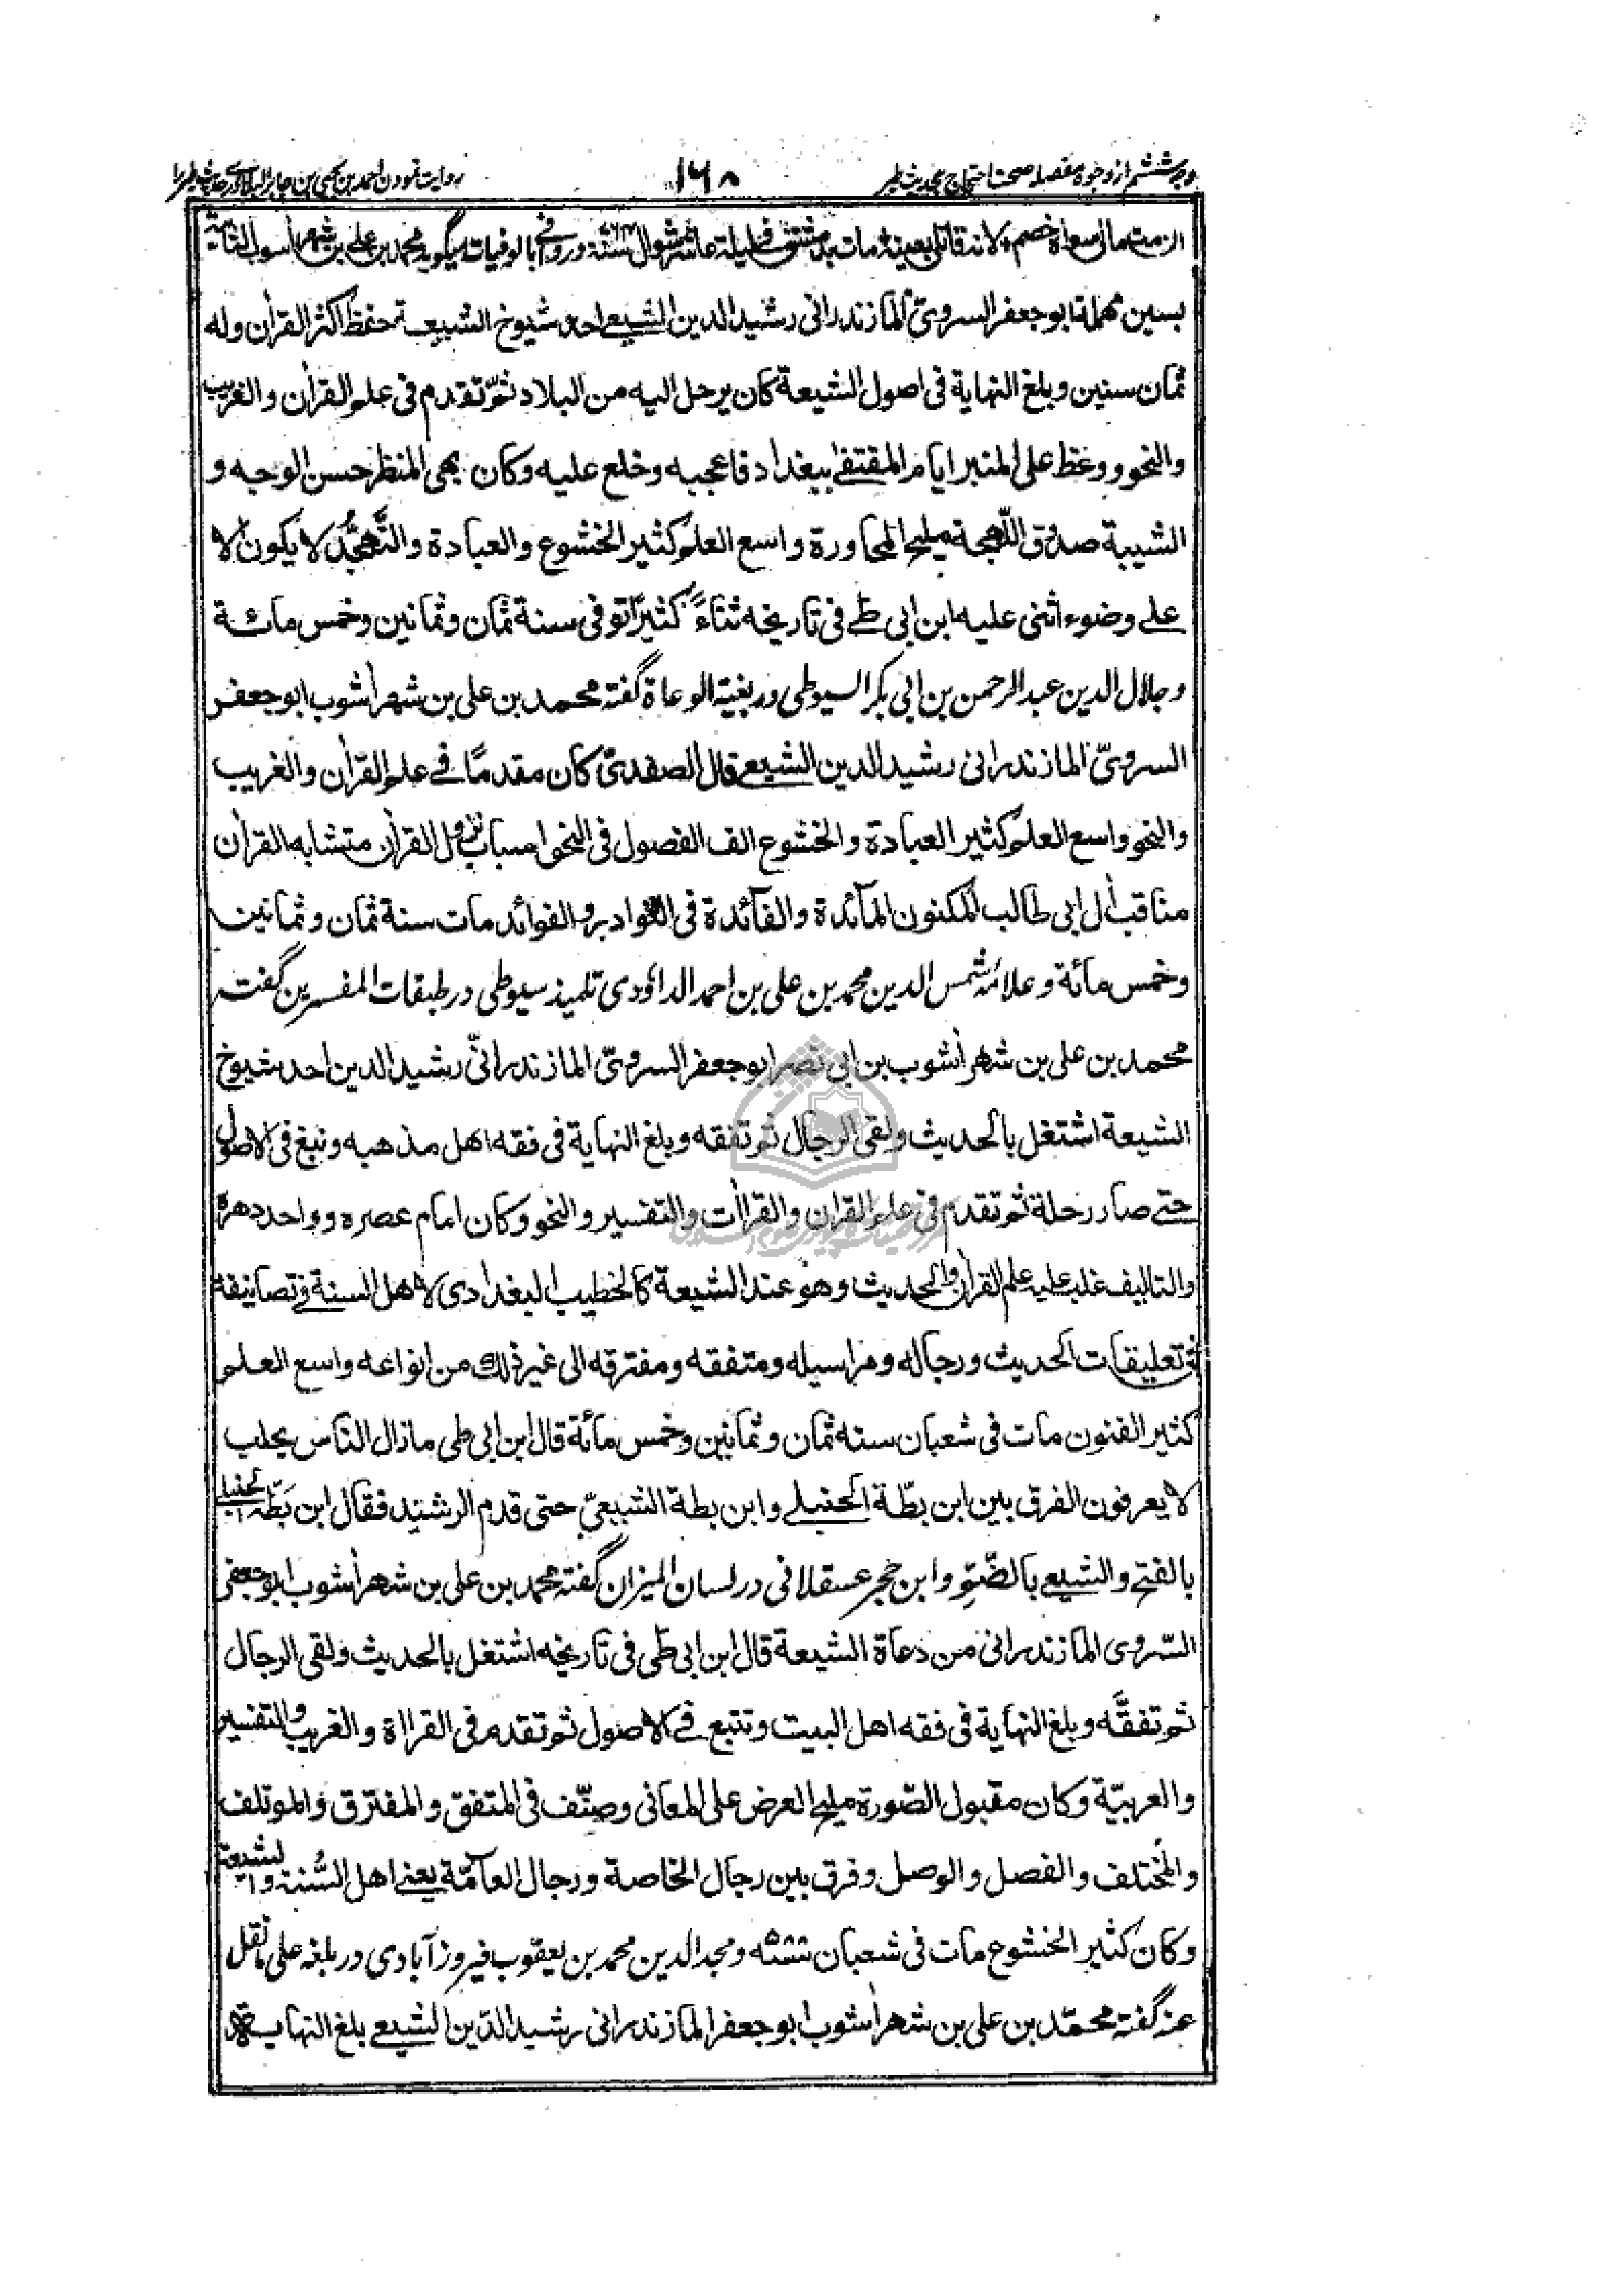 وجه ششم از وجوه مفصله صحت احتجاج بحديث طير
١٦٨
روايت نمودن احمد بن يحيى بن جابر البلاذرى حديث طير را
مات بدمشق فى ليلة عاشر شوال سنة و در وافى بالوفيات ميگويد محمد بن على بن شهرآسوب الثانية
بسين مهملة ابو جعفر السروىّ المازندرانى رشيد الدين الشيعى احد شيوخ الشيعة حفظ اكثر القرآن وله
ثمان سنين وبلغ النهاية فى اصول الشيعة كان يرحل اليه من البلاد ثم تقدم فى علم القرآن والغريب
والنحو ووعظ على المنبر ايام المقتفى ببغداد فاعجبه وخلع عليه وكان بهى المنظر حسن الوجه و
الشيبة صدوق اللهجة مليح المحاورة واسع العلم كثير الخشوع والعبادة والتَّهجُّد لا يكون الا
على وضوء اثنى عليه ابن ابى طى فى تاريخه ثناءً كثيرًا توفى سنة ثمان وثمانين وخمس مائة
وجلال الدين عبد الرحمن بن ابى بكر السيوطى در بغية الوعاة گفته محمد بن على بن شهرآشوب ابو جعفر
السروىّ المازندرانى رشيد الدين الشيعى قال الصفدى كان مقدمًا فى علم القرآن والغريب
والنحو واسع العلم كثير العبادة والخشوع الف الفصول فى النحو اسباب نزول القرآن متشابه القرآن
مناقب آل ابى طالب المكنون المآئدة والفآئدة فى النوادر والفوائد مات سنة ثمان وثمانين
وخمس مائة وعلامه شمس الدين محمد بن على بن احمد الداؤدى تلميذ سيوطى در طبقات المفسرين گفته
محمد بن على بن شهرآشوب بن ابى نصر ابو جعفر السروىّ المازندرانىّ رشيد الدين احد شيوخ
الشيعة اشتغل بالحديث ولقى الرجال ثم تفقه وبلغ النهاية فى فقه اهل مذهبه ونبغ فى الاصول
حتى صار رحلة ثم تقدم فى علم القرآن والقراٰت والتفسير والنحو وكان امام عصره وواحد دهره
والتاليف غلب عليه علم القرآن والحديث وهو عند الشيعة كالخطيب البغدادى لاهل السنة فى تصانيفه
فى تعليقات الحديث ورجاله ومراسيله ومتفقه ومفترقه الى غير ذلك من انواعه واسع العلم
كثير الفنون مات فى شعبان سنه ثمان وثمانين وخمس مائة قال ابن ابى طى مازال الناس بحلب
لا يعرفون الفرق بين ابن بطّة الحنبلى وابن بطة الشيعىّ حتى قدم الرشيد فقال ابن بَطّة الحنبلى
بالفتح والشيعى بالضّم و ابن حجر عسقلانى در لسان الميزان گفته محمد بن على بن شهرآشوب ابو جعفر
السّروى المازندرانى من دعاة الشيعة قال ابن ابى طى فى تاريخه اشتغل بالحديث ولقى الرجال
ثم تفقَّه وبلغ النهاية فى فقه اهل البيت وتتبع فى الاصول ثم تقدم فى القرااة والغريب والتفسير
والعربيّة وكان مقبول الصّورة مليح العرض على المعانى وصنّف فى المتفق والمفترق والموتلف
والمختلف والفصل والوصل وفرق بين رجال الخاصة ورجال العآمّة يعنى اهل السُّنة والشيعة
وكان كثير الخشوع مات فى شعبان سنة ٥٨٨ و مجد الدين محمد بن يعقوب فيروزآبادى در بلغه على ما نقل
عنه گفته محمّد بن على بن شهرآشوب ابو جعفر المازندرانى رشيد الدّين الشيعى بلغ النهاية